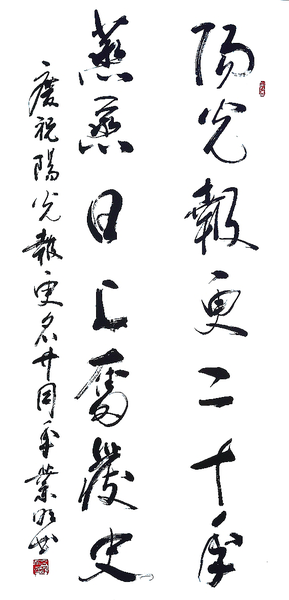 陽光報更二十年
蒸蒸日上奮發史
慶祝陽光報更名廿周年業明书